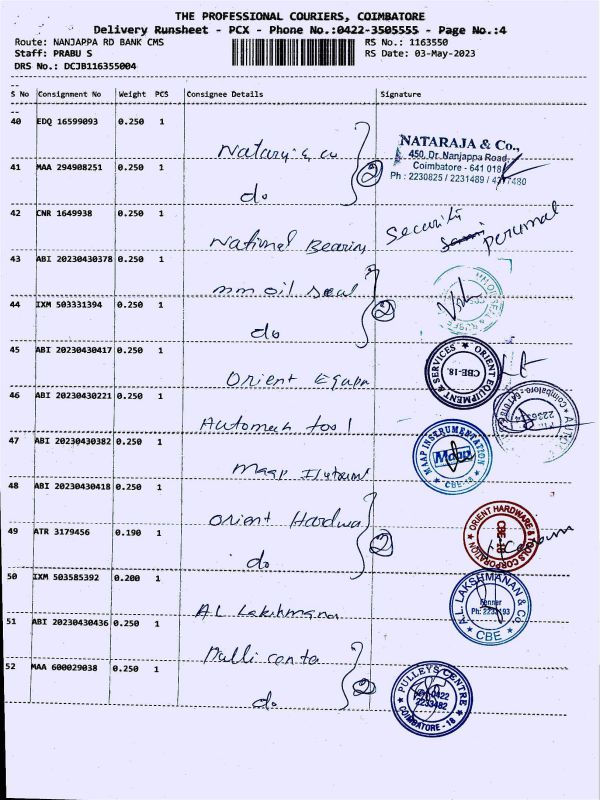 THE PROFESSIONAL COURIERS, COIMBATORE
Delivery Runsheet - PCX - Phone No.:0422-3505555 - Page No.:4
Route: NANJAPPA RD BANK CMS
RS No.: 1163550
Staff: PRABU S
RS Date: 03-May-2023
DRS No.: DCJB116355004
S No Consignment No Weight PCS Consignee Details Signature
40 EDQ 16599093 0.250 1
Nataraj & co
NATARAJA & Co.,
450, Dr. Nanjappa Road,
Coimbatore - 641 018
Ph : 2230825 / 2231489 /
41 MAA 294908251 0.250 1
do 2
42 CNR 1649938 0.250 1
National Bearing
Security
perumal
43 ABI 20230430378 0.250 1
mm oil seal
44 IXM 503331394 0.250 1
do 2
45 ABI 20230430417 0.250 1
Orient Equpm
ORIENT EQUIPMENT & SERVICES
CBE-18.
46 ABI 20230430221 0.250 1
Automech tool
Coimbatore - 641 018
47 ABI 20230430382 0.250 1
Maap
MAAP INSTRUMENTATION
Maap
CBE-18
48 ABI 20230430418 0.250 1
Orient Hardwa
ORIENT HARDWARE & TOOLS CORPORATION
CBE-18
49 ATR 3179456 0.190 1
do 2
50 IXM 503585392 0.200 1
A L Lakshmana
A.L. LAKSHMANAN & Co.
Fenner
CBE
51 ABI 20230430436 0.250 1
Pulli centa
52 MAA 600029038 0.250 1
do 2
PULLEYS CENTRE
0422
2233482
COIMBATORE - 18